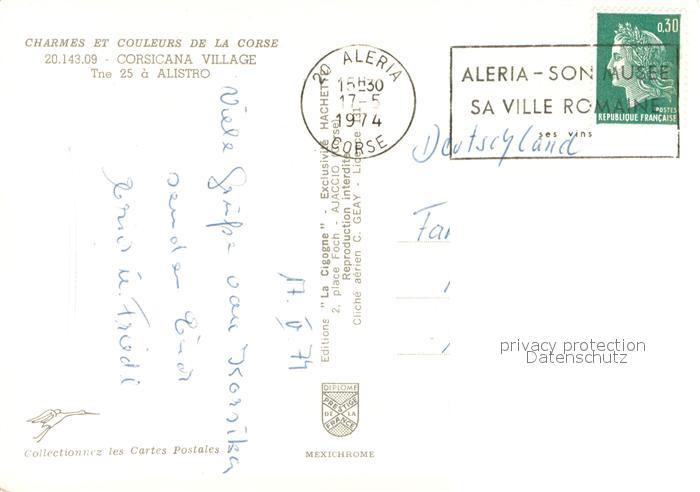 CHARMES ET COULEURS DE LA CORSE
20.143.09 - CORSICANA VILLAGE
Tne 25 à ALISTRO
Viele Grüße von Korsika
senden Euch
u. Friedl
17. V. 74
Collectionnez les Cartes Postales
Editions "La Cigogne" - Exclusivité HACHETTE
2, place Foch - AJACCIO (Corse)
Reproduction interdite
Cliché aérien C. GEAY - Licence
DIPLOME
PRESTIGE
DE LA
FRANCE
MEXICHROME
20 ALERIA
15H30
17-5
1974
CORSE
ALERIA - SON MUSEE
SA VILLE ROMAINE
ses vins
0,30
POSTES
REPUBLIQUE FRANÇAISE
Deutschland
privacy protection
Datenschutz